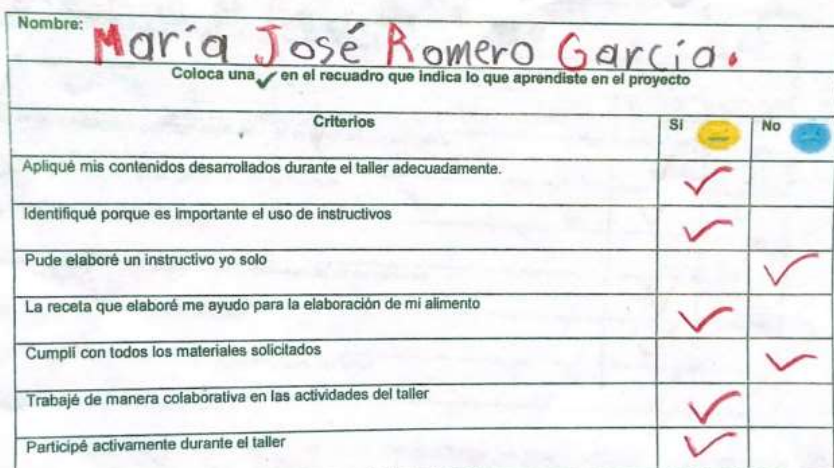 Nombre: María José Romero García.
Coloca una ✓ en el recuadro que indica lo que aprendiste en el proyecto
Criterios Si No
Apliqué mis contenidos desarrollados durante el taller adecuadamente. ✓
Identifiqué porque es importante el uso de instructivos ✓
Pude elaboré un instructivo yo solo ✓
La receta que elaboré me ayudo para la elaboración de mi alimento ✓
Cumplí con todos los materiales solicitados ✓
Trabajé de manera colaborativa en las actividades del taller ✓
Participé activamente durante el taller ✓